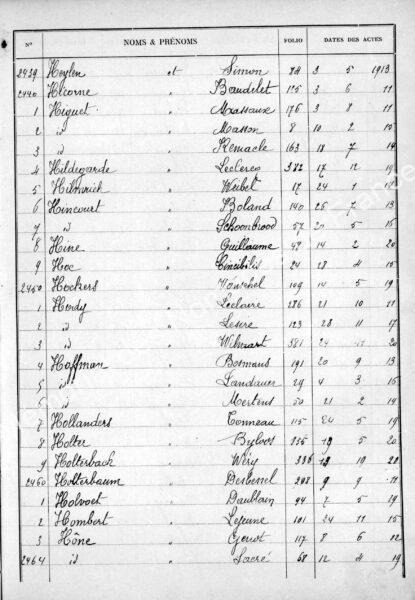 N° NOMS & PRÉNOMS FOLIO DATES DES ACTES
2439 Heylen et Simon 84 3 5 1913
2440 Hicorne " Baudelet 125 3 6 11
1 Higuet " Massaux 176 3 8 11
2 id " Masson 8 10 2 15
3 id " Remacle 163 18 7 14
4 Hildegarde " Leclercq 382 17 12 19
5 Hilmrick " Weibel 17 24 1
6 Hincourt " Boland 140 26 7 13
7 id " Schoonbrood 57 20 5 15
8 Hine " Guillaume 42 14 2 20
9 Hoc " 24 28 4 15
2450 Hockers " 109 14 5 19
1 Hody " Leclaire 286 21 10 11
2 id " Lesire 123 28 11 17
3 id " Wilmart 581 24 20
4 Hoffman " Bosmans 191 20 9 13
5 id " Landauer 29 4 3 15
6 id " Mertens 50 21 2 14
7 Hollanders " Tonneau 115 24 5 19
8 Holter " Byloos 335 19 5 20
9 Holterbach " Wéry 336 19 19 20
2460 Holterbaum " 298 9 9 11
1 Holvoet " Daublain 94 7 5 19
2 Hombert " Lejeune 101 24 11 15
3 Hône " Geniot 117 8 6 12
2464 id " Sacré 68 12 4 19